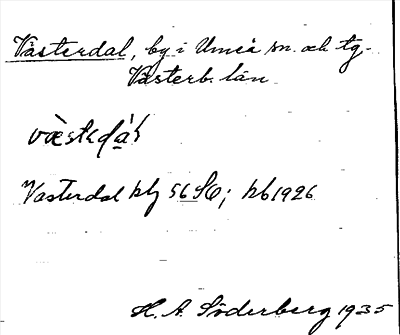 Västerdal, by i Umeå sn. och tg.
Västerb. län
Vasterdal blg 56 SO; kb 1926
H. A. Söderberg 1935